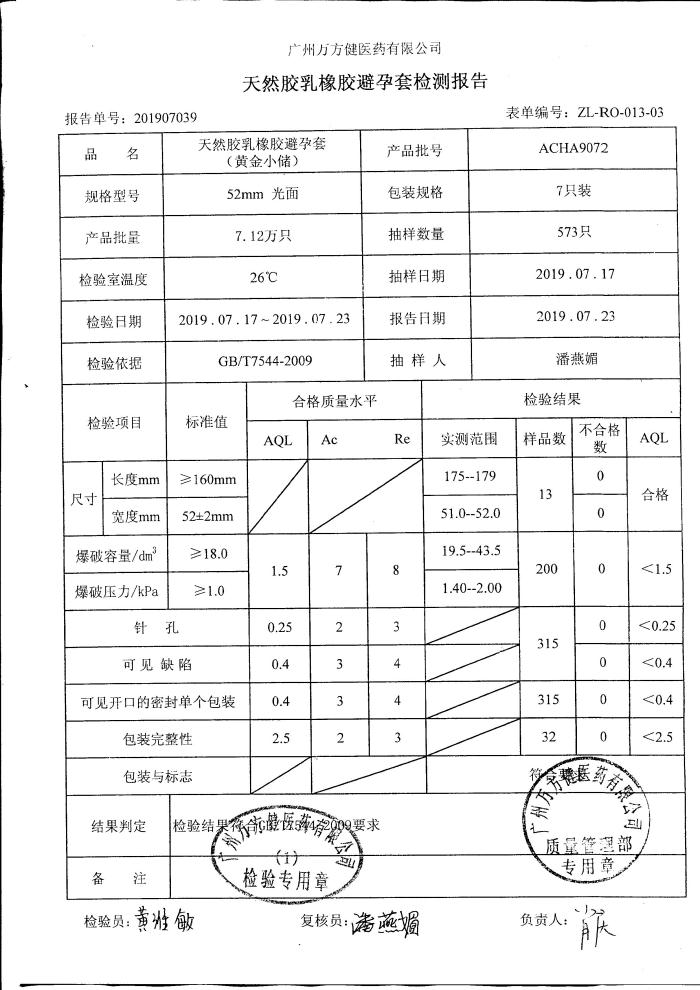 广州万方健医药有限公司
天然胶乳橡胶避孕套检测报告
报告单号：201907039 表单编号：ZL-RO-013-03
品 名 天然胶乳橡胶避孕套（黄金小储） 产品批号 ACHA9072
规格型号 52mm 光面 包装规格 7只装
产品批量 7.12万只 抽样数量 573只
检验室温度 26℃ 抽样日期 2019.07.17
检验日期 2019.07.17～2019.07.23 报告日期 2019.07.23
检验依据 GB/T7544-2009 抽 样 人 潘燕媚
检验项目 标准值 合格质量水平 检验结果
AQL Ac Re 实测范围 样品数 不合格数 AQL
尺寸 长度mm ≥160mm 175--179 13 0 合格
宽度mm 52±2mm 51.0--52.0 0
爆破容量/dm³ ≥18.0 1.5 7 8 19.5--43.5 200 0 <1.5
爆破压力/kPa ≥1.0 1.40--2.00
针 孔 0.25 2 3 315 0 <0.25
可见缺陷 0.4 3 4 0 <0.4
可见开口的密封单个包装 0.4 3 4 315 0 <0.4
包装完整性 2.5 2 3 32 0 <2.5
包装与标志 符合要求
结果判定 检验结果符合GB/T7544-2009要求
备 注
广州万方健医药有限公司
(1)
检验专用章
广州万方健医药有限公司
质量管理部
专用章
检验员： 复核员：潘燕媚 负责人：